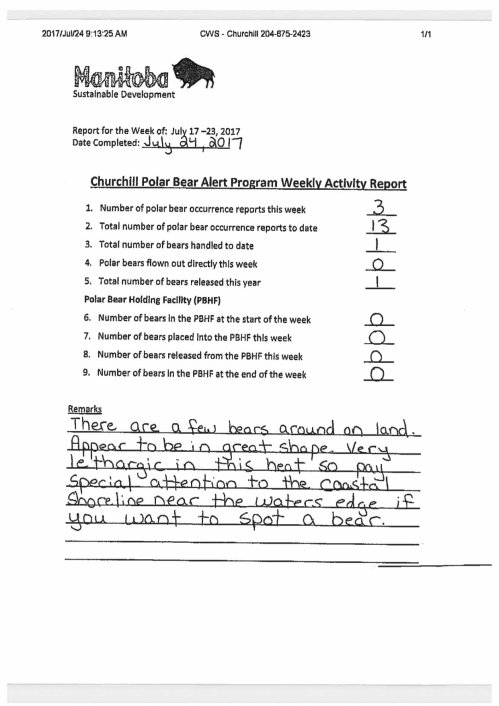 2017/Jul/24 9:13:25 AM CWS - Churchill 204-675-2423 1/1
Manitoba
Sustainable Development
Report for the Week of: July 17 –23, 2017
Date Completed: July 24, 2017
Churchill Polar Bear Alert Program Weekly Activity Report
1. Number of polar bear occurrence reports this week 3
2. Total number of polar bear occurrence reports to date 13
3. Total number of bears handled to date 1
4. Polar bears flown out directly this week 0
5. Total number of bears released this year 1
Polar Bear Holding Facility (PBHF)
6. Number of bears in the PBHF at the start of the week 0
7. Number of bears placed into the PBHF this week 0
8. Number of bears released from the PBHF this week 0
9. Number of bears in the PBHF at the end of the week 0
Remarks
There are a few bears around on land.
Appear to be in great shape. Very
lethargic in this heat so pay
special attention to the coastal
Shoreline near the waters edge if
you want to spot a bear.